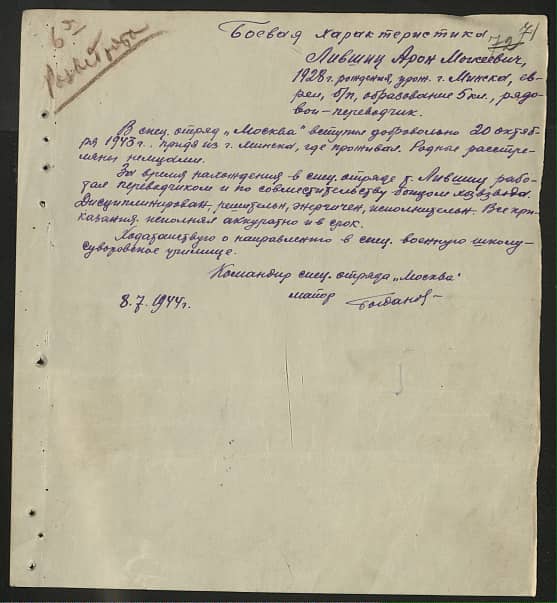 Боевая характеристика
71
72
Лившиц Арон Моисеевич,
1928 г. рождения, урож. г. Минска, ев-
рей, б/п, образование 5 кл., рядо-
вой-переводчик.
В спец. отряд „Москва" вступил добровольно 20 октяб-
ря 1943 г., придя из г. Минска, где проживал. Родные расстре-
ляны немцами.
За время нахождения в спец. отряде т. Лившиц рабо-
тал переводчиком и по совместительству бойцом хозвзвода.
Дисциплинирован, решителен, энергичен, исполнителен. Все при-
казания исполнял аккуратно и в срок.
Ходатайствую о направлении в спец. военную школу-
суворовское училище.
Командир спец. отряда „Москва"
майор Богданов
8.7.1944 г.